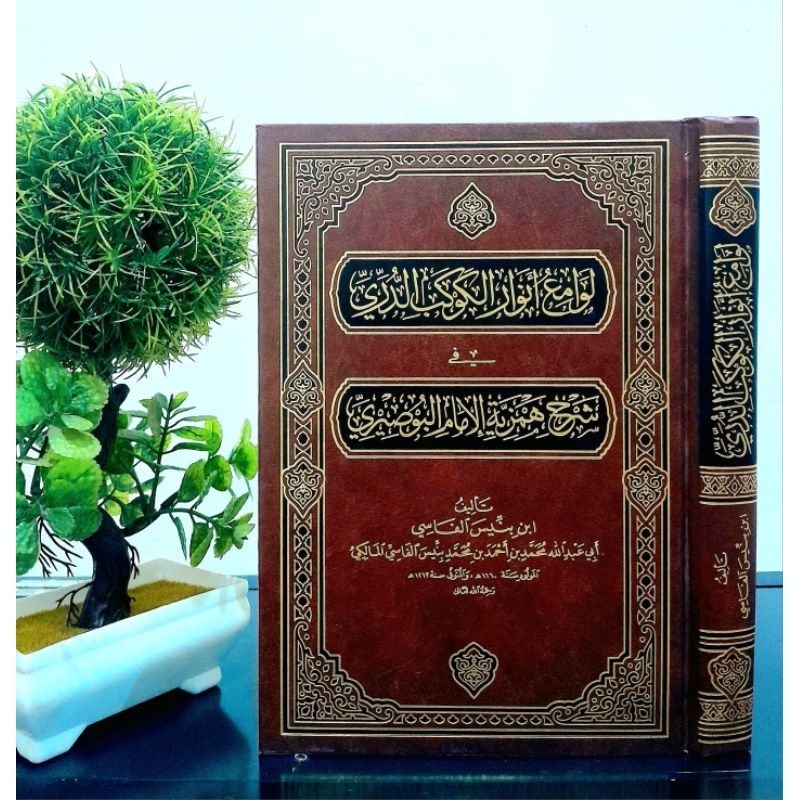 لوامع أنوار الكوكب الدري
في
شرح همزية الإمام البوصيري
تأليف
ابن بنيس الفاسي
أبي عبد الله محمد بن أحمد بن محمد بنيس الفاسي المالكي
المولود سنة ١١٦٠هـ، والمتوفى سنة ١٢١٣هـ
رحمه الله تعالى
لوامع أنوار الكوكب الدري
تأليف
ابن بنيس الفاسي